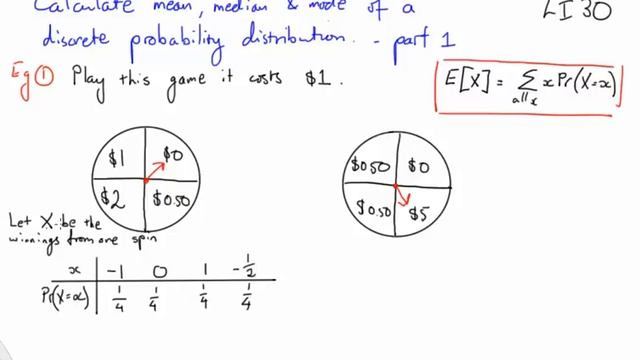 Calculate mean, median & mode of a
discrete probability distribution. - part 1
LI 30
Eg ① Play this game it costs $1.
E[X] = ∑ x Pr(X=x)
all x
$1 $0
$2 $0.50
$0.50 $0
$0.50 $5
Let X be the
winnings from one spin
x -1 0 1 -1/2
Pr(X=x) 1/4 1/4 1/4 1/4